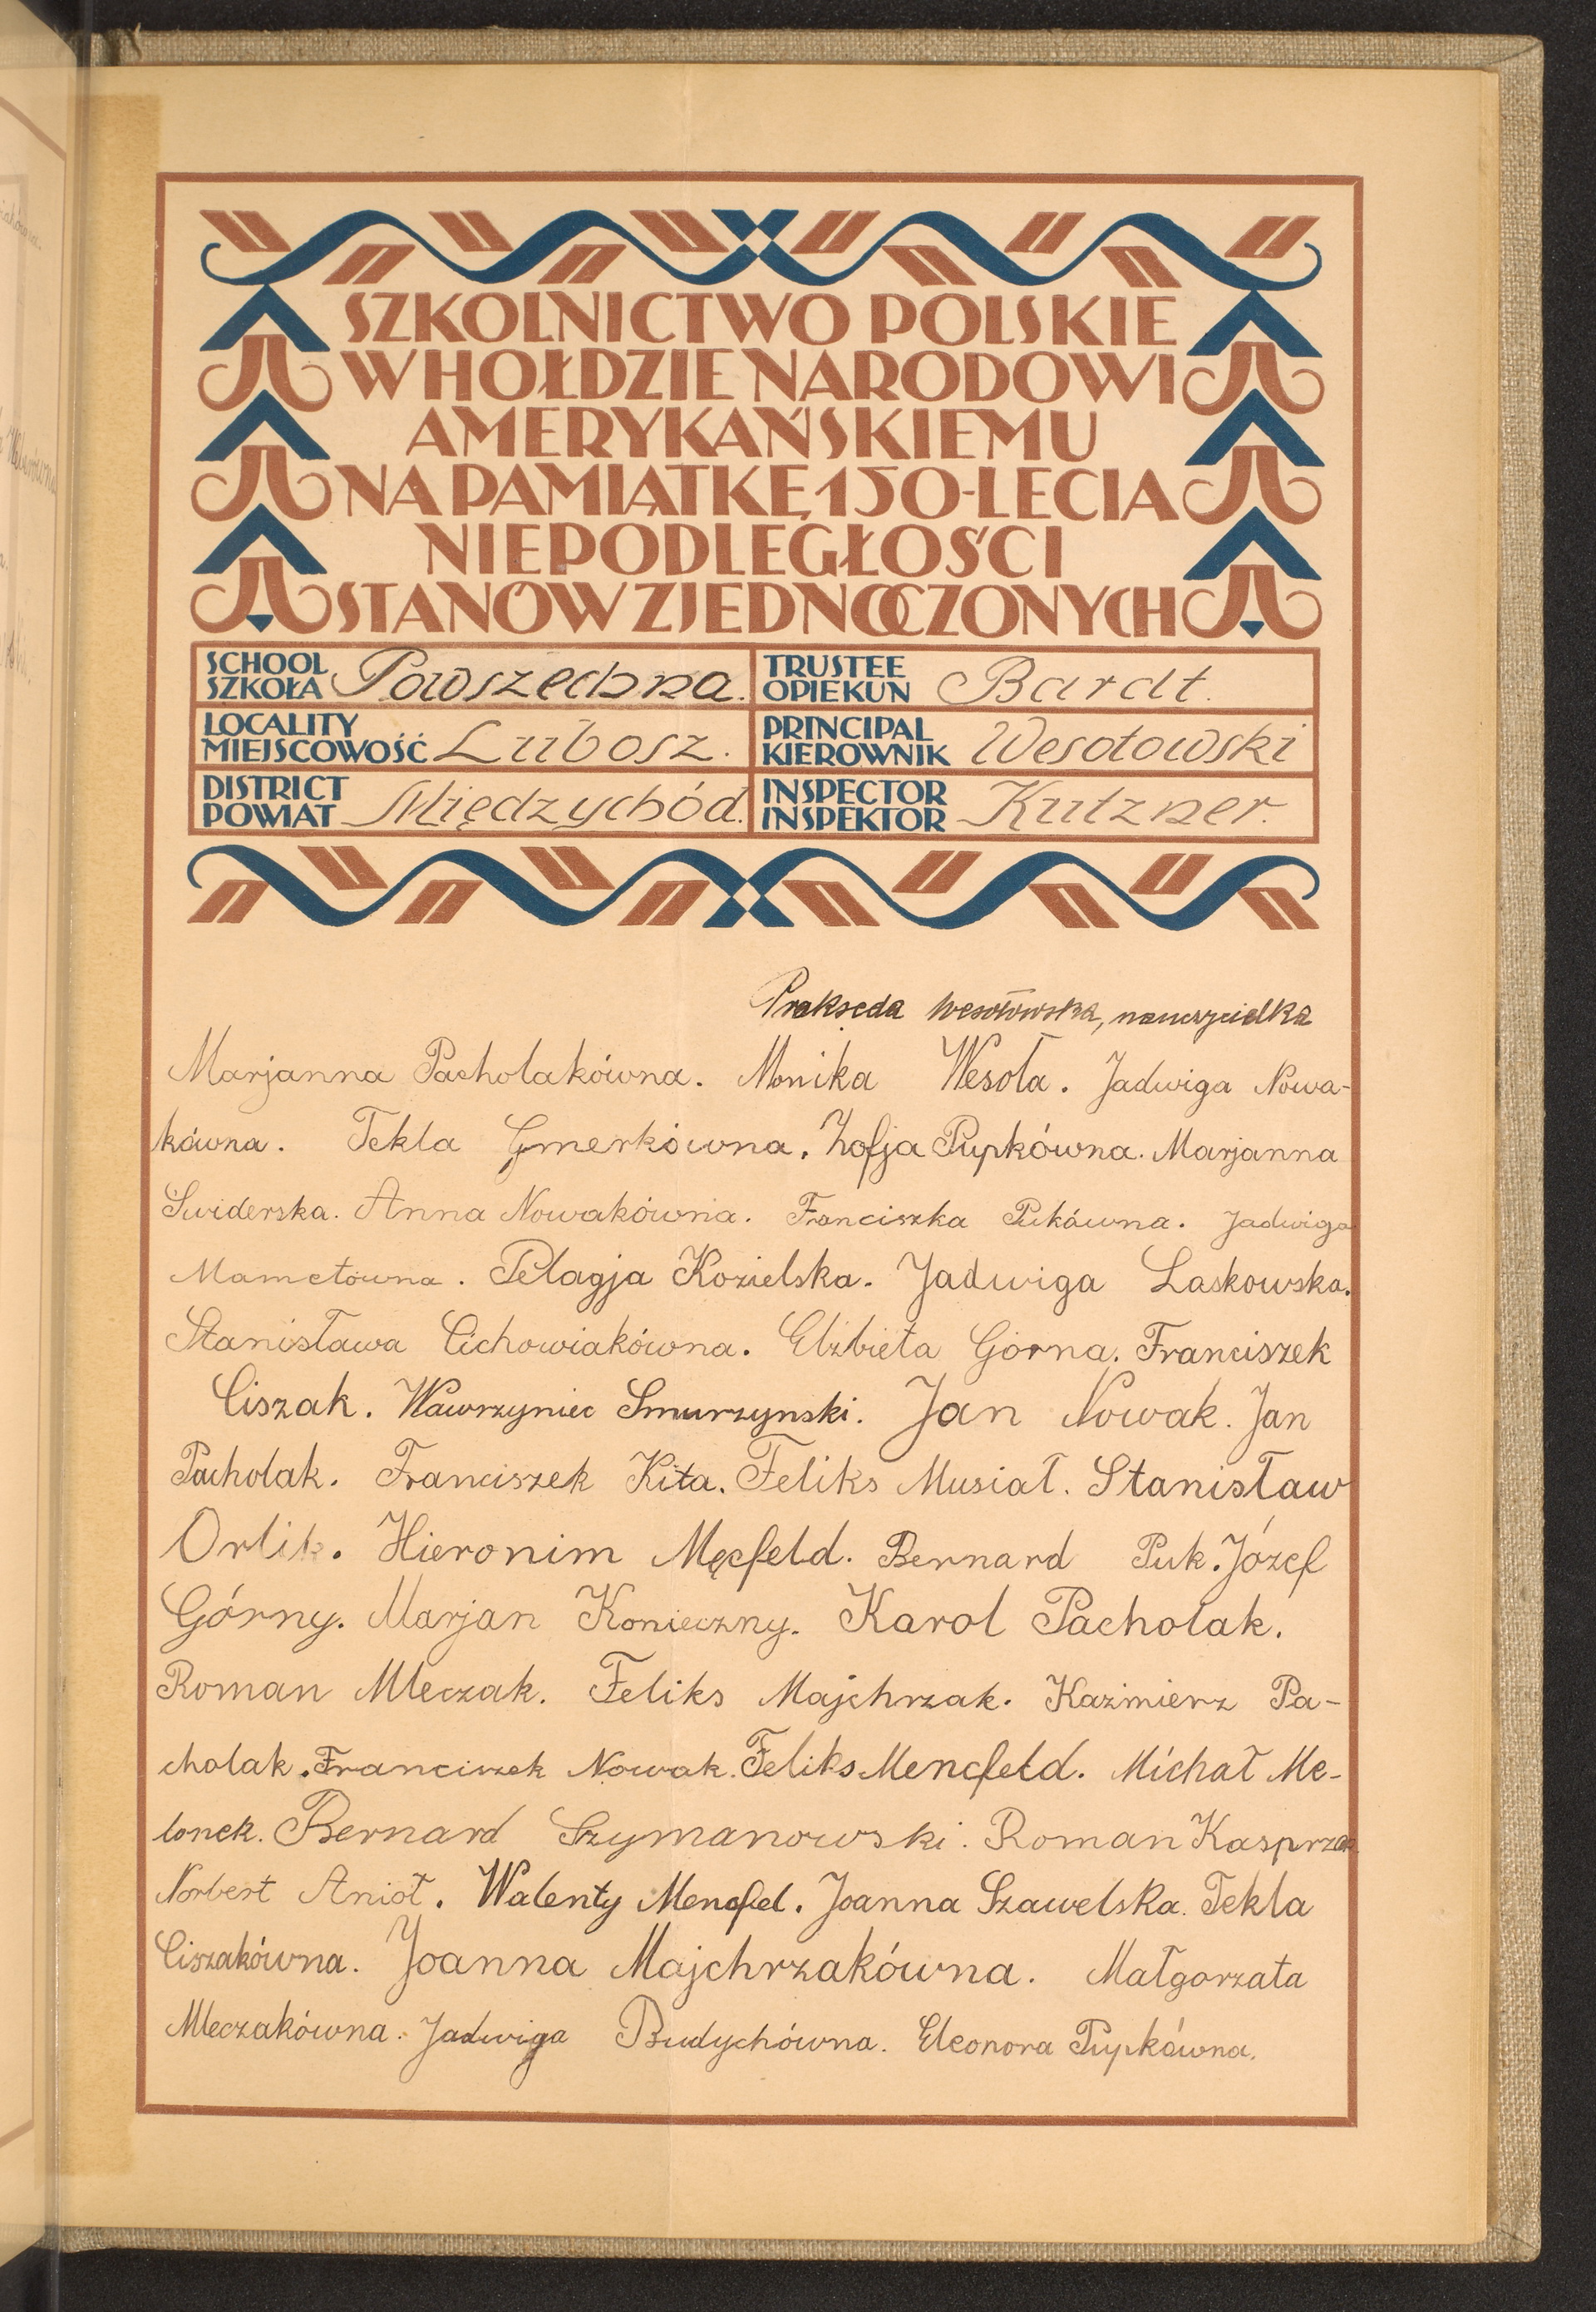 SZKOLNICTWO POLSKIE
W HOŁDZIE NARODOWI
AMERYKAŃSKIEMU
NA PAMIĄTKĘ 150-LECIA
NIEPODLEGŁOŚCI
STANÓW ZJEDNOCZONYCH
SCHOOL SZKOŁA Powszechna.
TRUSTEE OPIEKUN Bardt.
LOCALITY MIEJSCOWOŚĆ Lubosz.
PRINCIPAL KIEROWNIK Wesołowski
DISTRICT POWIAT Międzychód.
INSPECTOR INSPEKTOR Kutzner.
Prakseda Wesołowska, nauczycielka
Marjanna Pacholakówna. Monika Wesoła. Jadwiga Nowa-
kówna. Tekla Gmerkówna. Zofja Pupkówna. Marjanna
Swiderska. Anna Nowakówna. Franciszka Pukówna. Jadwiga
Mametówna. Pelagja Kozielska. Jadwiga Laskowska.
Stanisława Cichowiakówna. Elżbieta Górna. Franciszek
Ciszak. Wawrzyniec Smurzynski. Jan Nowak. Jan
Pacholak. Franciszek Kita. Feliks Musiał. Stanisław
Orlik. Hieronim Męcfeld. Bernard Puk. Józef
Górny. Marjan Konieczny. Karol Pacholak.
Roman Mleczak. Feliks Majchrzak. Kazimierz Pa-
cholak. Franciszek Nowak. Feliks Mencfeld. Michał Me-
lonek. Bernard Szymanowski. Roman Kasprzak
Norbert Anioł. Walenty Mencfel. Joanna Szawelska. Tekla
Ciszakówna. Joanna Majchrzakówna. Małgorzata
Mleczakówna. Jadwiga Budychówna. Eleonora Pupkówna.